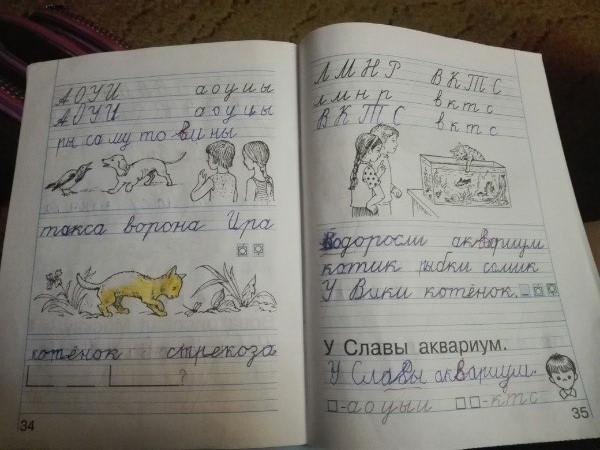 А О У И а о у и ы
А О У И а о у и ы
ры са му то вы ны
такса ворона Ира
котёнок стрекоза
?
34
Л М Н Р В К Т С
л м н р в к т с
В К Т С в к т с
Водоросли аквариум
котик рыбки сомик
У Вики котёнок.
У Славы аквариум.
У Славы аквариум.
-а о у ы и -к т с
35